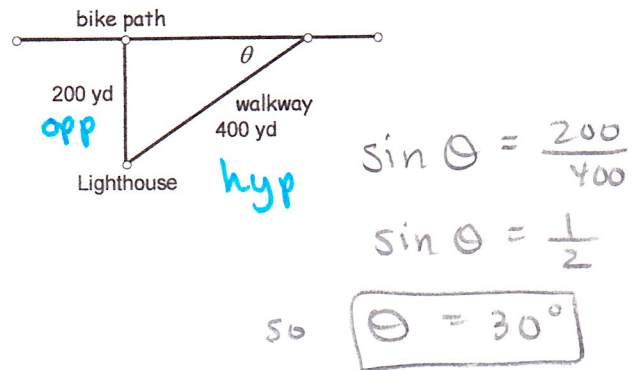 bike path
θ
200 yd
opp
walkway
400 yd
Lighthouse
hyp
sin θ = 200/400
sin θ = 1/2
so θ = 30°